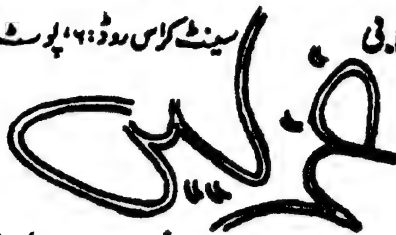 سینٹ کراس روڈ: ۶، پوسٹ
غزلیں